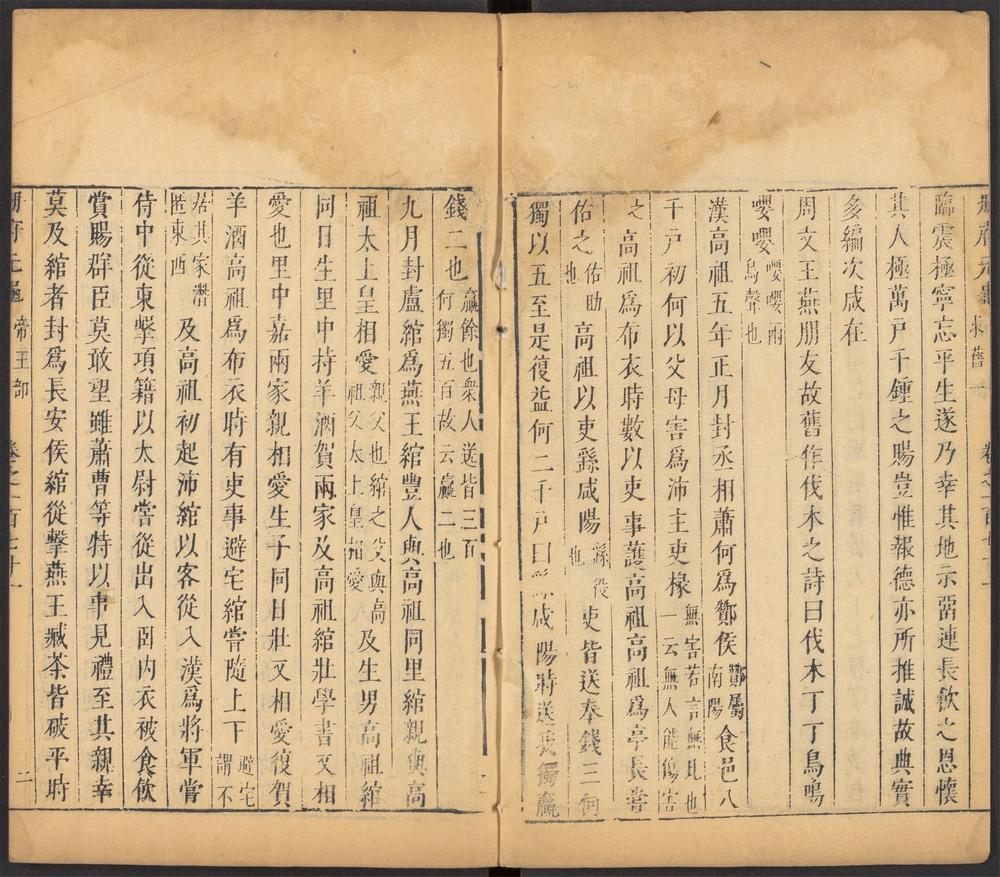 冊府元龜 求舊一 卷之一百七十二
臨震極寧忘平生遂乃幸其地示弭連長飲之恩懷
其人極萬戶千鍾之賜豈惟報德亦所推誠故典實
多編次咸在
周文王燕朋友故舊作伐木之詩曰伐木丁丁鳥鳴
嚶嚶嚶嚶兩鳥聲也
漢高祖五年正月封丞相蕭何為酇侯酇屬南陽食邑八
千戶初何以父母害為沛主吏椽無害若言無比也一云無人能傷害
之高祖為布衣時數以吏事護高祖高祖為亭長嘗
佑之佑助也高祖以吏繇咸陽繇役也吏皆送奉錢三何
獨以五至是復益何二千戶曰咸陽時送我獨贏
錢二也贏餘也衆人送皆三百何獨五百故云贏二也
九月封盧綰為燕王綰豐人與高祖同里綰親與高
祖太上皇相愛親父也綰之父與高祖父太上皇相愛及生男高祖綰
同日生里中持羊酒賀兩家及高祖綰壯學書又相
愛也里中嘉兩家親相愛生子同日壯又相愛復賀
羊酒高祖為布衣時有吏事避宅綰嘗隨上下避宅謂不
居其家潛匿東西及高祖初起沛綰以客從入漢為將軍嘗
侍中從東擊項籍以太尉嘗從出入臥內衣被食飲
賞賜群臣莫敢望雖蕭曹等特以事見禮至其親幸
莫及綰者封為長安侯綰從擊燕王臧荼皆破平時
冊府元龜 帝王部 卷之一百七十二 二